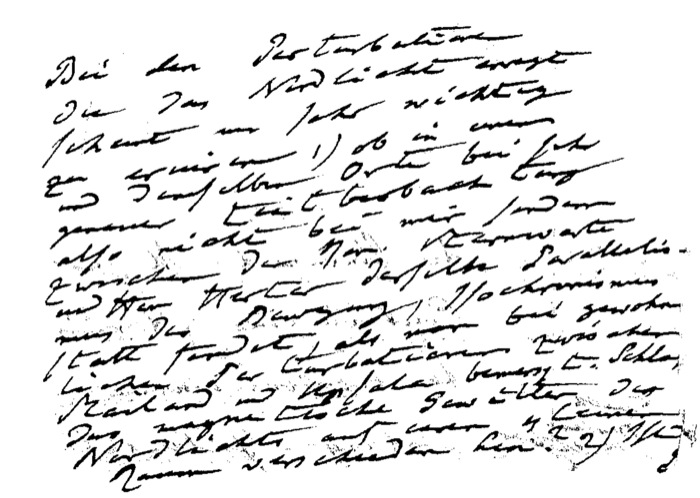 Bei den Perturbationen
die das Nordlicht erregt
scheint mir sehr wichtig
zu eruiren 1) ob in einem
und demselben Orte bei sehr
genauer
also nicht bei mir sondern
zwischen der Sternwarte
und Herter derselbe Parallelis-
mus der Bewegung, Isochronismus
statt findet, als man bei gewöhn
lichen Perturbationen zwischen
Mailand und Upsala bemerkt.
das magnetische Gewitter des
Nordlichts auf einen kleinen
Raum verschieden 2) Ist